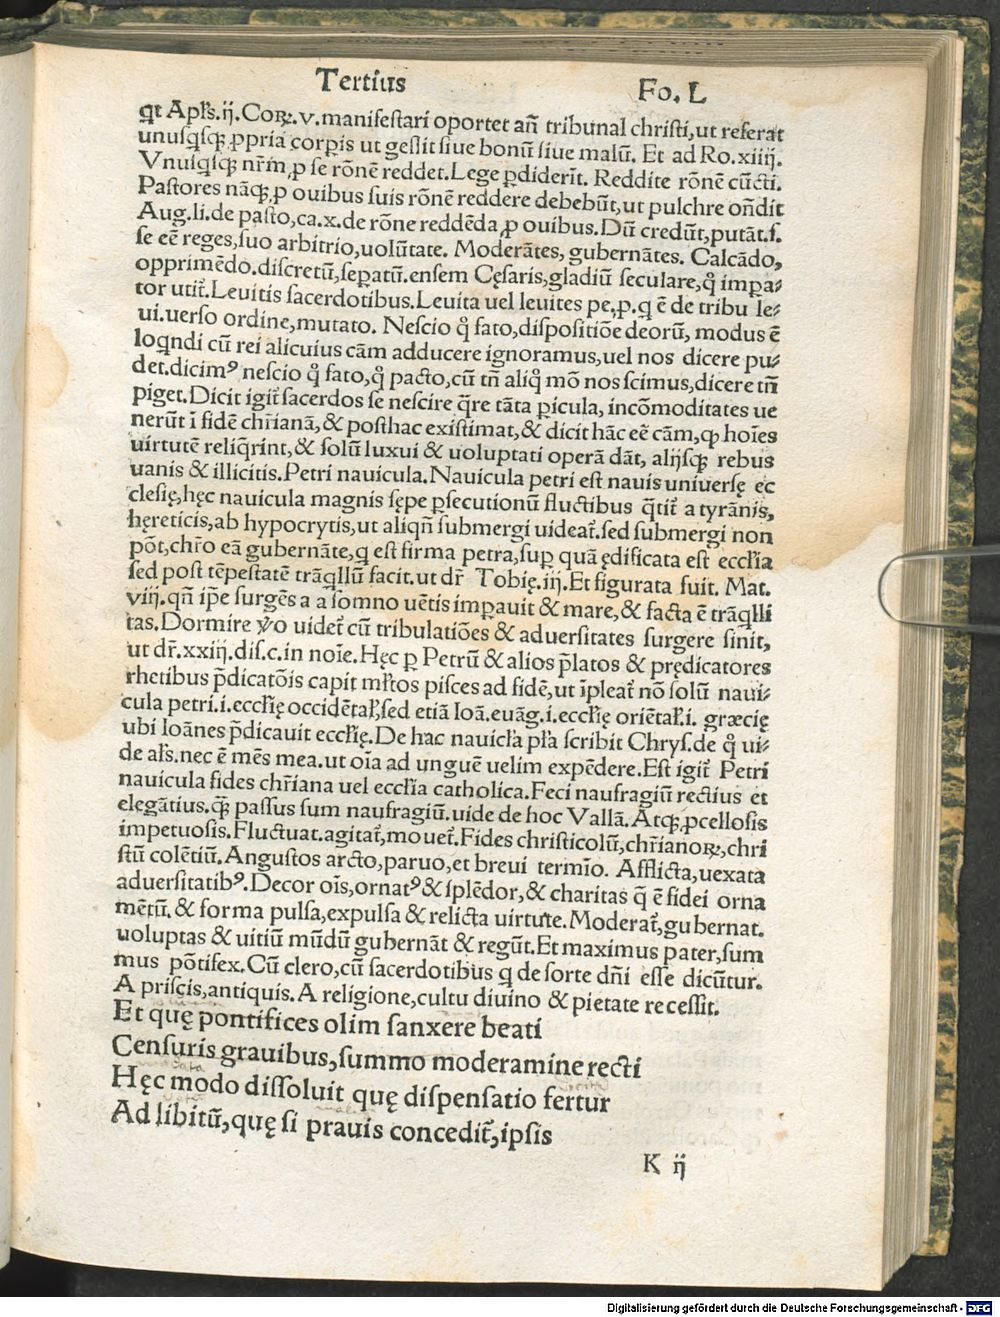 Tertius Fo. L
qt Apl̃s.ij.Coꝝ.v.manifestari oportet añ tribunal christi,ut referat
unusq̃sqꝫ ꝓpria corꝑis ut gessit siue bonũ siue malũ. Et ad Ro.xiiij.
Vnusq̃sqꝫ nr̃m,ꝓ se rõnẽ reddet.Lege ꝑdiderĩt. Reddite rõnẽ cũcti.
Pastores nãqꝫ,ꝓ ouibus suis rõnẽ reddere debebũt,ut pulchre oñdit
Aug.li.de pasto,ca.x.de rõne reddẽda,ꝓ ouibus.Dũ credũt,putãt.s.
se eẽ reges,suo arbitrio,uolũtate. Moderãtes, gubernãtes. Calcãdo,
opprimẽdo.discretũ,seꝑatũ.ensem Cęsaris,gladiũ seculare,q̃ impa⸗
tor utit̃.Leuitis sacerdotibus.Leuita uel leuites pe,ꝓ.q ẽ de tribu le⸗
ui.uerso ordine,mutato. Nescio q̃ fato,dispositiõe deorũ, modus ẽ
loq̃ndi cũ rei alicuius cãm adducere ignoramus,uel nos dicere pu⸗
det.dicimꝰ nescio q̃ fato,q̃ pacto,cũ tñ aliq̃ mõ nos scimus,dicere tñ
piget.Dicit igit̃ sacerdos se nescire q̃re tãta ꝑicula, incõmoditates ue
nerũt ĩ fidẽ chr̃ianã,& posthac existimat,& dicit hãc eẽ cãm,ꝙ hoĩes
uirtutẽ reliq̃rint,& solũ luxui & uoluptati operã dãt, alijsqꝫ rebus
uanis & illicitis.Petri nauicula.Nauicula petri est nauis uniuersę ec
clesię,hęc nauicula magnis sępe ꝑsecutionũ fluctibus q̃tit̃ a tyrãnis,
hęreticis,ab hypocrytis,ut aliqñ submergi uideat̃.sed submergi non
põt,chr̃o eã gubernãte,q est firma petra,suꝑ quã ędificata est eccl̃ia
sed post tẽpestatẽ trãq̃llũ facit.ut dr̃ Tobię.iij.Et figurata fuit. Mat.
viij.qñ ip̃e surgẽs a a somno uẽtis imꝑauit & mare,& facta ẽ trãq̃lli
tas.Dormire ꝟo uidet̃ cũ tribulatiões & aduersitates surgere sinit,
ut dr̃.xxiij.dis.c.in noĩe.Hęc ꝑ Petrũ & alios p̃latos & prędicatores
rhetibus p̃dicatõis capit ml̃tos pisces ad fidẽ,ut ĩpleat̃ nõ solũ naui⸗
cula petri.i.eccl̃ię occidẽtal̃,sed etiã Ioã.euãg.i.eccl̃ię oriẽtal̃.i. græcię
ubi Ioãnes p̃dicauit eccl̃ię.De hac nauicl̃a pl̃a scribit Chrys.de q̃ ui⸗
de al̃s.nec ẽ mẽs mea.ut oĩa ad unguẽ uelim expẽdere.Est igit̃ Petri
nauicula fides chr̃iana uel eccl̃ia catholica.Feci naufragiũ rectius et
elegãtius.q̃ꝫ passus sum naufragiũ.uide de hoc Vallã. Atqꝫ,ꝓcellosis
impetuosis.Fluctuat.agitat̃,mouet̃.Fides christicolũ,chr̃ianoꝝ,chri
stũ colẽtiũ.Angustos arcto,paruo,et breui termĩo. Afflicta,uexata
aduersitatibꝰ.Decor oĩs,ornatꝰ & splẽdor,& charitas q̃ ẽ fidei orna
mẽtũ.& forma pulsa,expulsa & relicta uirtute.Moderat̃,gubernat.
uoluptas & uitiũ mũdũ gubernãt & regũt.Et maximus pater,sum
mus põtifex.Cũ clero,cũ sacerdotibus q de sorte dñi esse dicũtur.
A priscis,antiquis.A religione,cultu diuino & pietate recessit.
Et quę pontifices olim sanxere beati
Censuris grauibus,summo moderamine recti
Hęc modo dissoluit quę dispensatio fertur
Ad libitũ,quę si prauis concedit̃,ipsis
K ij
Digitalisierung gefördert durch die Deutsche Forschungsgemeinschaft - DFG